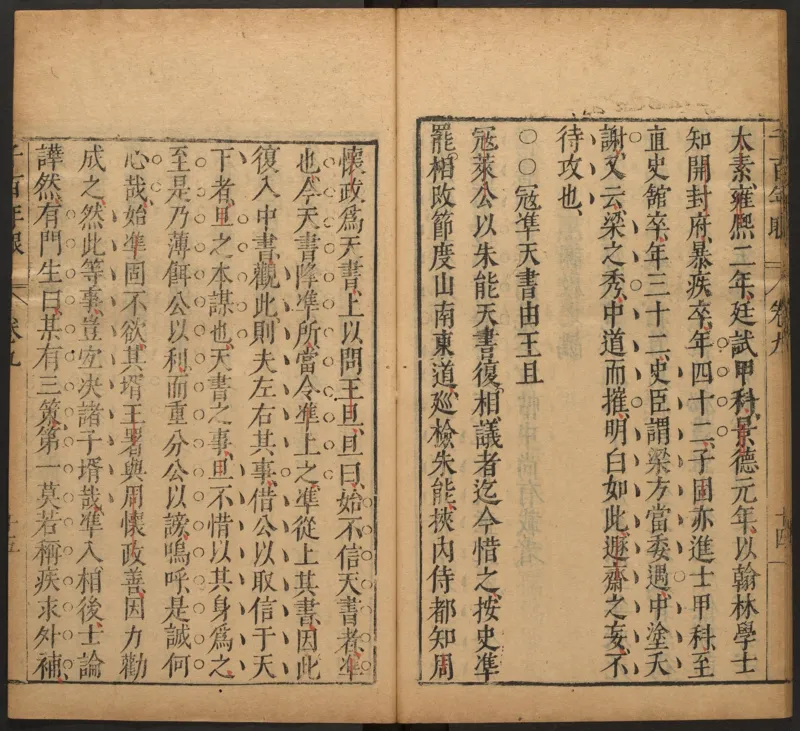 太素雍熙二年廷試甲科景德元年以翰林學士
知開封府暴疾卒年四十二子固亦進士甲科至
直史館卒年三十二史臣謂梁方當委遇中塗夭
謝又云梁之秀中道而摧明白如此遯齋之妄不
待攻也
○○寇準天書由王旦
寇萊公以朱能天書復相議者迄今惜之按史準
罷相改節度山南東道廵檢朱能挾內侍都知周
懷政爲天書上以問王旦旦曰始不信天書者準
也今天書降準所當令準上之準從上其書因此
復入中書觀此則夫左右其事借公以取信于天
下者旦之本謀也天書之事旦不惜以其身爲之
至是乃薄餌公以利而重分公以謗嗚呼是誠何
心哉始準固不欲其壻王署與周懷政善因力勸
成之然此等事豈宜决諸子壻哉準入相後士論
譁然有門生曰某有三策第一莫若稱疾求外補
千百年眼 卷九 十五